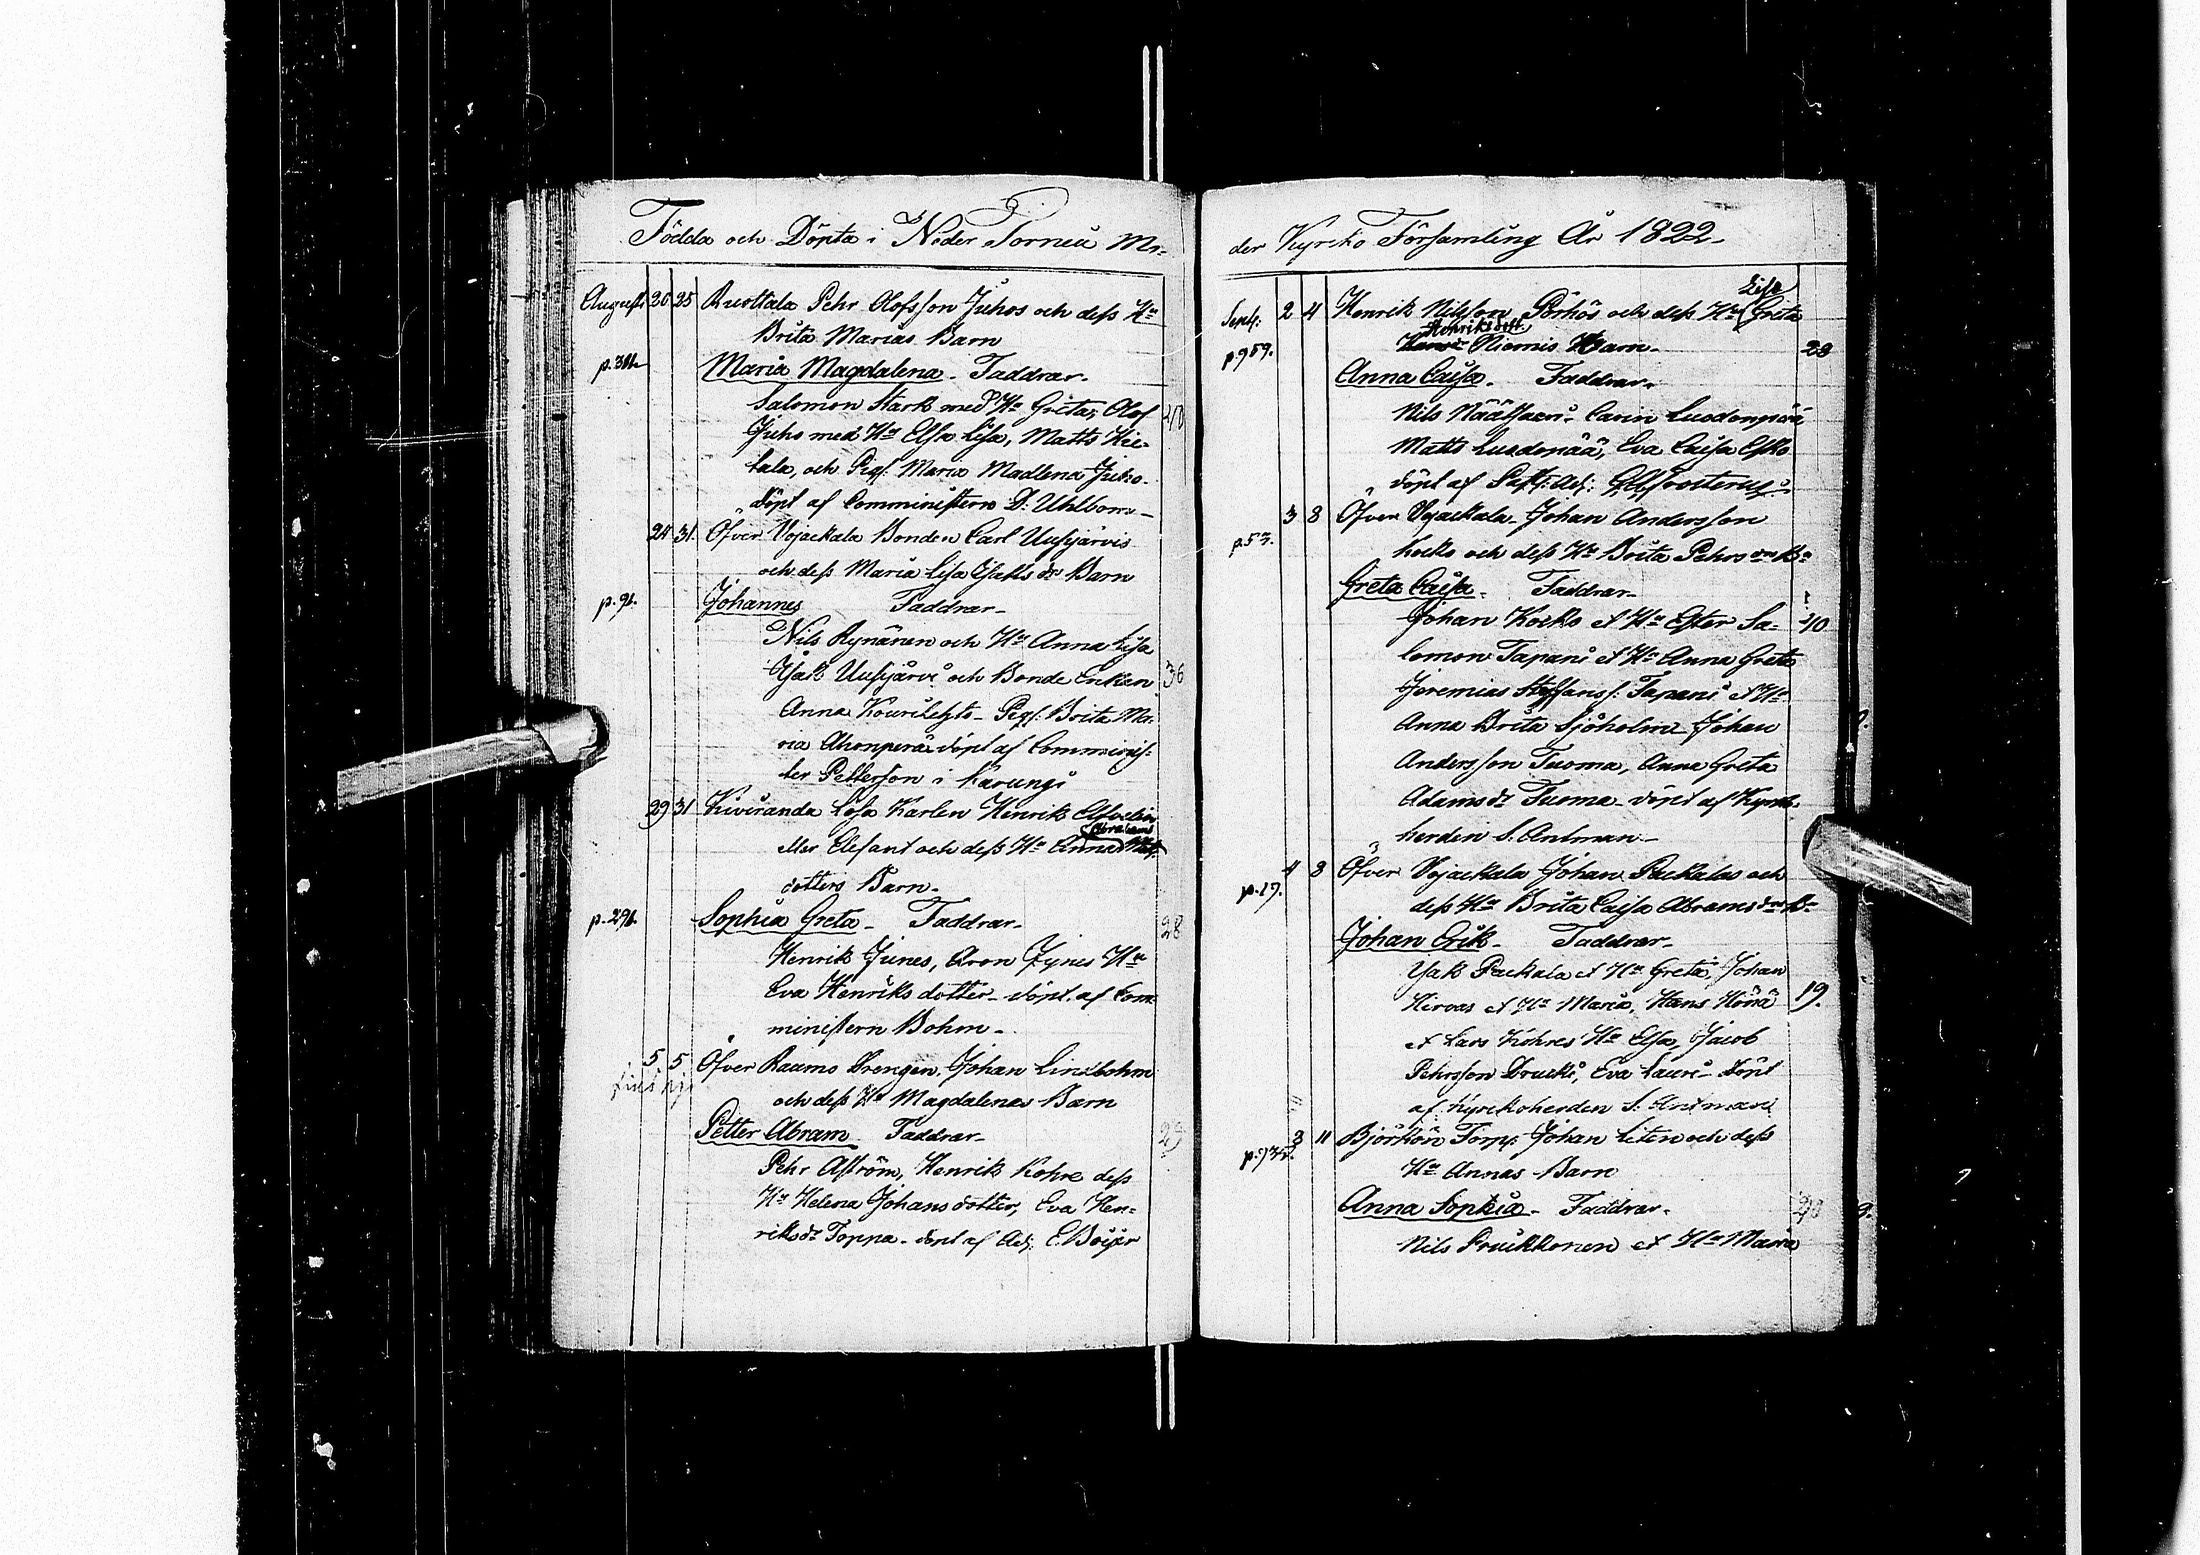 Födda och Döpta i Neder Torneå Mo-
August 20 25 Ruottala Pehr Olofsson Juhos och dess H:u
Brita Marias Barn
Maria Magdalena - Faddrar.
Salomon Stark med H:u Greta, Olof 40
Juho med H:u Elsa Lisa, Matts Kie-
tala, och Pig: Maria Madlena Juho
döpt af Comministern D: Uhlbom-
24 31 Öfver Vojackala Bonden Carl Uusijärvis
och dess Maria Lisa Isaks dr Barn
p.91. Johannes Faddrar-
Nils Rynänen och H:u Anna Lisa
Isak Uusijärvi och Bonde Enkan 36
Anna Kourilehto- Pig: Brita Ma-
ria Ahonperä döpt af Comminis-
ter Petterson i Karungi
29 31 Kiviranda Lösa Karlen Henrik
eller Elefant och dess H:u Anna Abrahams
dotters Barn-
p.291. Sophia Greta - Faddrar- 28
Henrik Junes, Aron Jynes H:u
Eva Henriks dotter- döpt. af Com-
ministern Bohm-
5 5 Öfver Raumo Drengen Johan Lindbohm
och dess H:u Magdalenas Barn
Petter Abram Faddrar- 29
Pehr Aström, Henrik Kohre dess
H:u Helena Johans dotter, Eva Hen-
riksdr Toppa- döpt af Adj: E. Böijer
der Kyrko Församling År 1822-
Sept: 2 4 Henrik Nilsson Pörhös och dess H:u Lisa Greta
p.959. Henriksdott. Niemis Barn- 28
Anna Caisa. Faddrar-
Nils Carin Luodonpää
Matts Luodonpää, Eva Caisa Esko
döpt af Past: Adj:
3 8 Öfver Vojackala- Johan Andersson
p.53. Kocko och dess H:u Brita Pehrs drs B-
Greta Caisa- Faddrar-
Johan Kocko et H:u Ester Sa- 40
lomon Tapani et H:u Anna Greta
Jeremias Staffanss: Tapani et H:u
Anna Brita Sjöholm- Johan
Andersson Tuoma, Anna Greta
Adamsdr Tuoma- döpt af Kyrko-
herden S. Antman-
4 8 Öfver Vojackala Johan Packalas och
p.19. dess H:u Brita Caisa Abramsdrs B-
Johan Erik- Faddrar-
Isak Packala et H:u Greta, Johan
Hirvas et H:u Maria, Hans 19.
et Lars Kohres H:u Elsa, Jacob
Pehrsson Eva Lauri- Döpt
af Kyrckoherden S. Antman
3 11 Björkön Torp: Johan Liten och dess
H:u Annas Barn
Anna Sophia- Faddrar-
Nils Pruikkonen et H:u Maria